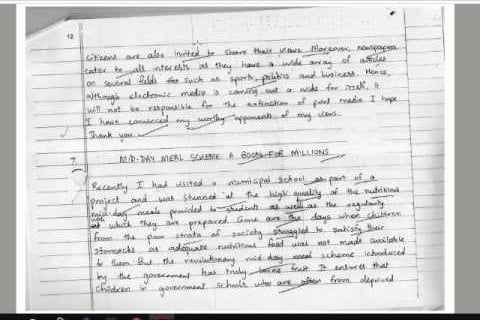 12
citizens are also invited to share their views. Moreover, newspapers
cater to all interests as they have a wide array of articles
on several fields such as sports, politics and business. Hence,
although electronic media is coming out a wide for itself, it
will not be responsible for the extinction of print media I hope
I have convinced my worthy opponents of my views.
Thank you.
7
MID-DAY MEAL SCHEME A BOON FOR MILLIONS
Recently I had visited a municipal school as part of a
project and was stunned at the high quality of the nutritious
mid-day meals provided to students as well as the regularity
with which they are prepared. Gone are the days when children
from the poor strata of society struggled to satisfy their
stomachs as adequate nutritious food was not made available
to them. But the revolutionary mid day meal scheme introduced
by the government has truly borne fruit. It ensures that
children in government schools who are often from deprived